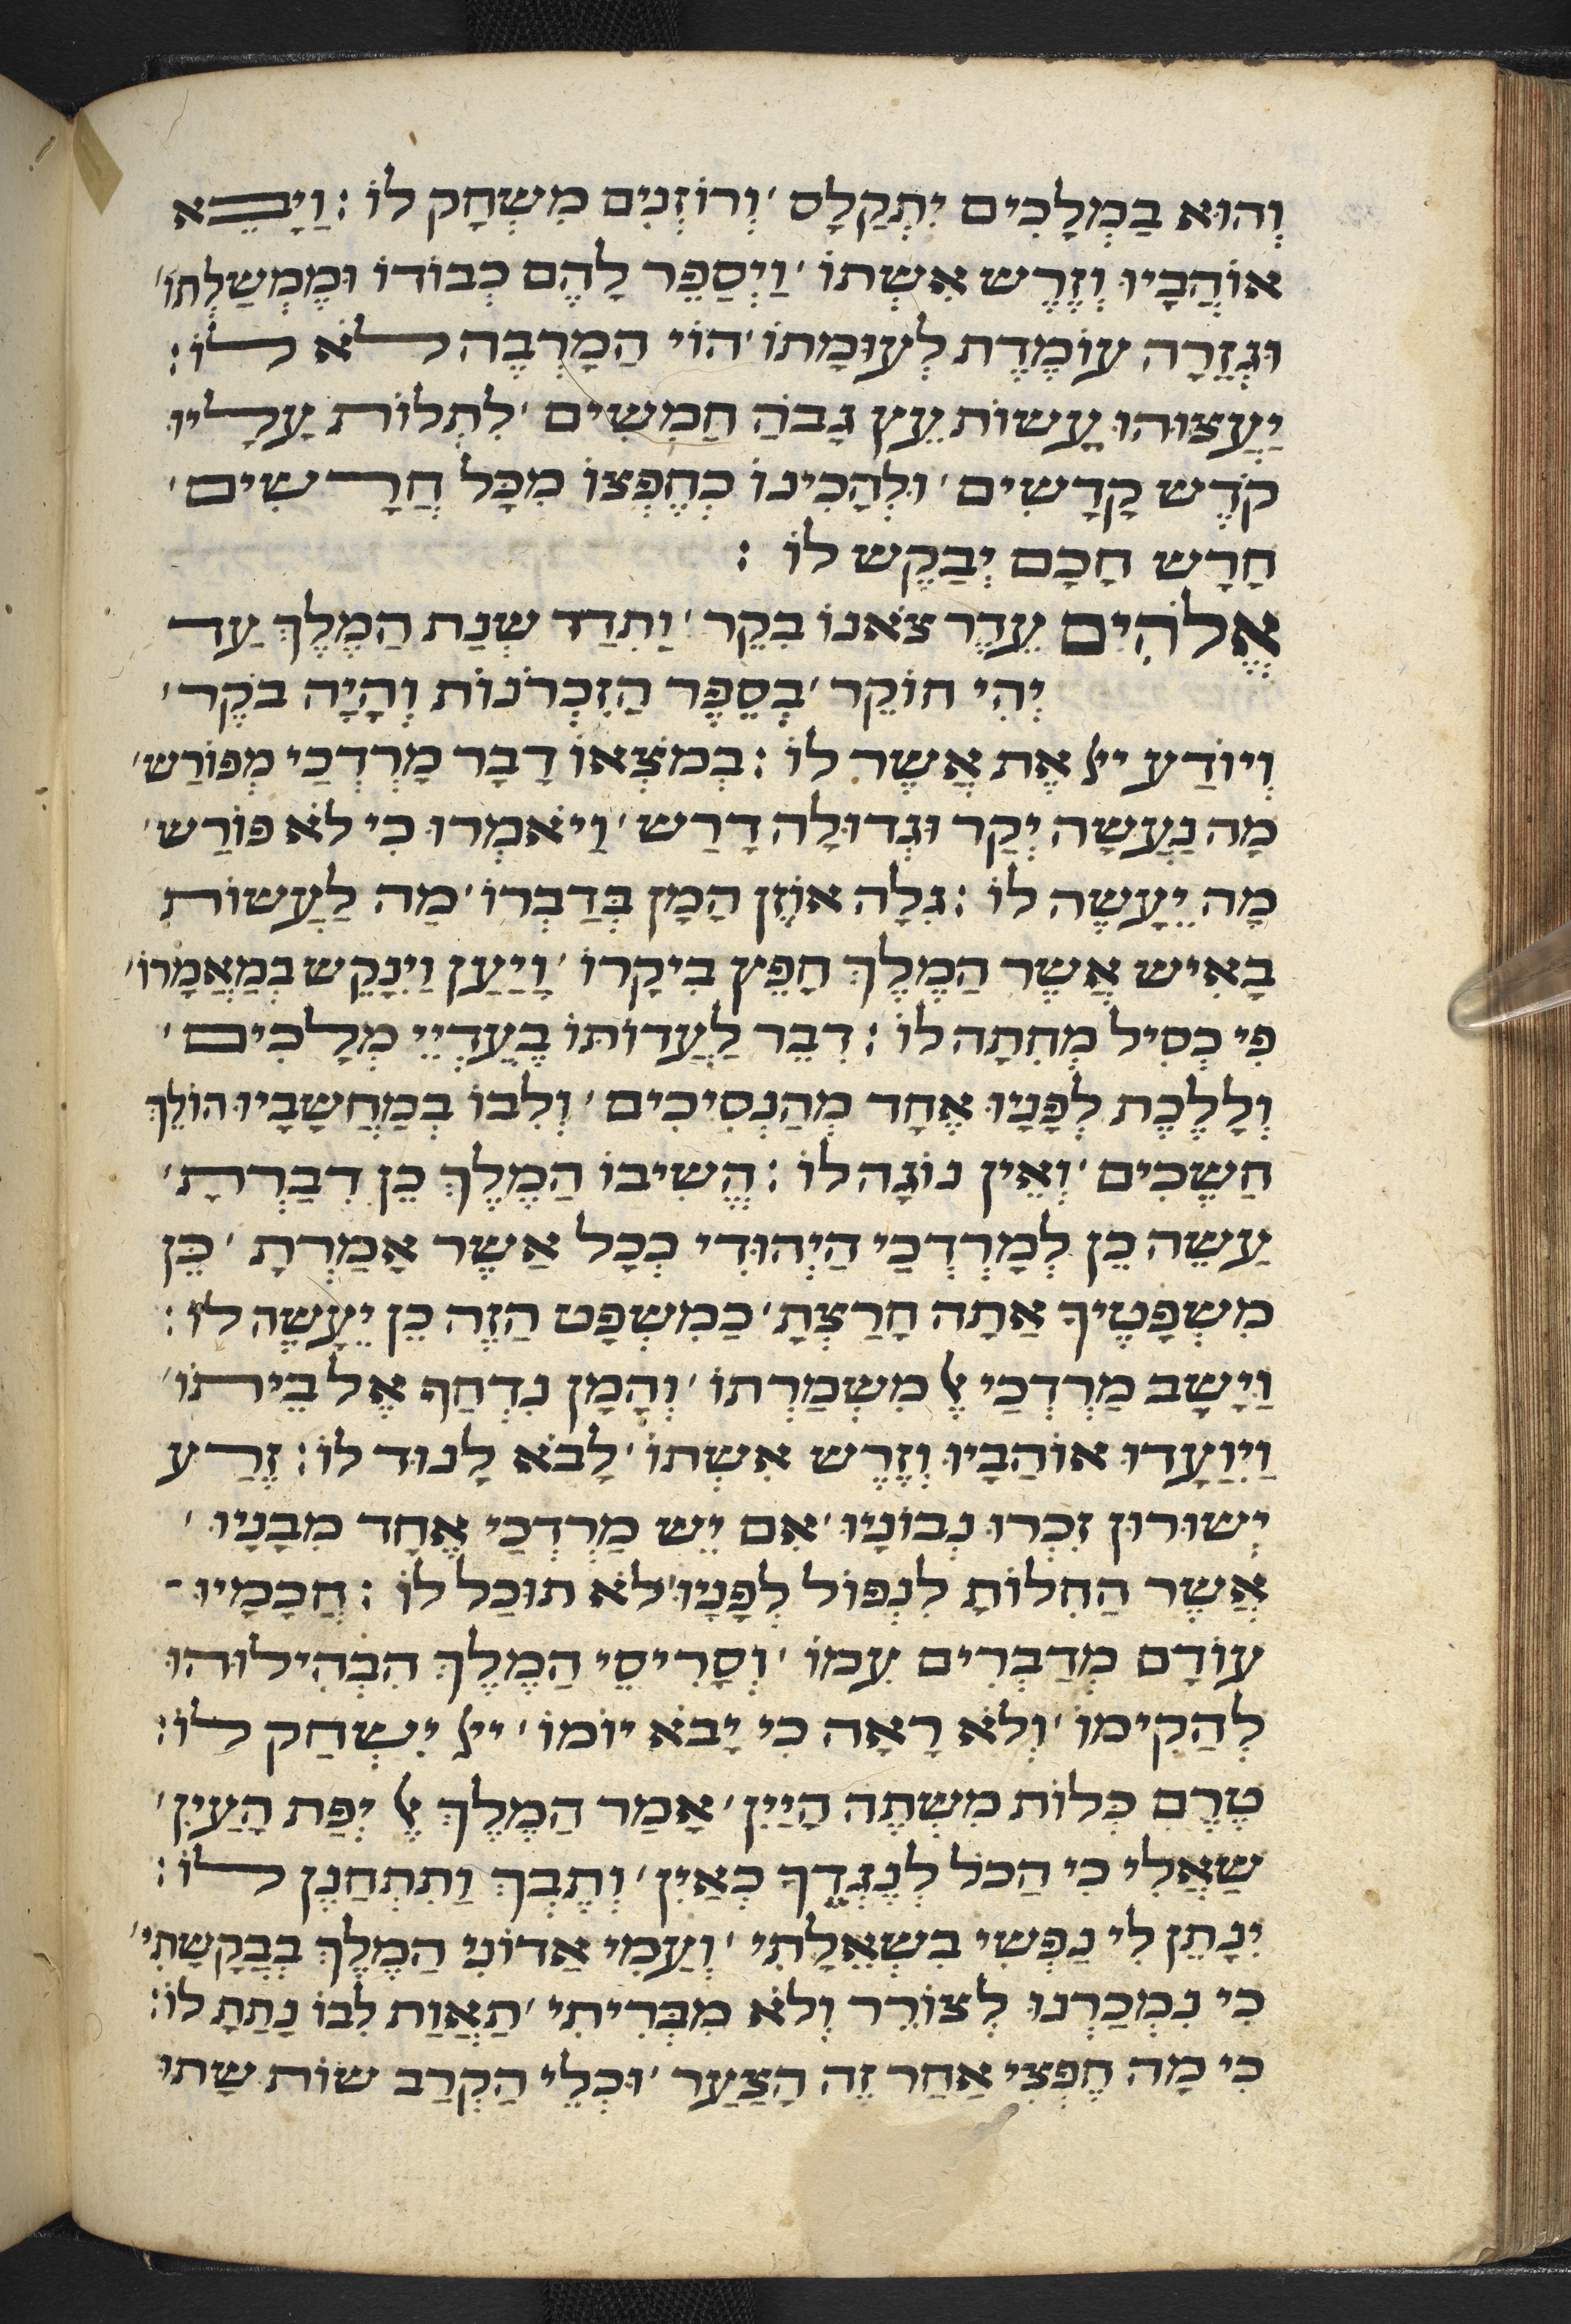 וְהוּא בַמְלָכִים יִתְקַלָס ׳ וְרוֹזְנִים מִשְׂחָק לוֹ : וַיָבֵא
אוֹהֲבָיו וְזֶרֶש אִשְתוֹ ׳ וַיְסַפֵּר לָהֶם כְּבוֹדוֹ וּמֶמְשַׁלְתּוֹ ׳
וּגְזֵרָה עוֹמֶדֶת לְעוּמָתוֹ ׳ הוֹי הַמַרְבֶּה לֹא לוֹ :
יַעֲצוּהוּ עֲשׂוֹת עֵץ גָבֹהַּ חַמִשִׁים ׳ לִתְלוֹת עָלָיו
קֹדֶש קָדָשִׁים ׳ וּלְהָכִינוֹ כְּחֶפְצוֹ מִכָּל חֲרָשִׁים ׳
חָרָש חָכָם יְבַקֶש לוֹ :
אֱלֹהִים עֵדֶר צֹאנוֹ בִקֵר ׳ וַתִדַד שְנַת הַמֶלֶךְ עַד
יְהִי חוֹקֵר ׳ בְסֵפֶר הַזִכְרֹנוֹת וְהָיָה בֹקֶר ׳
וְיוֹדַע יֹ֗ל אֶת אֲשֶר לוֹ : בְּמֹצְאוֹ דָבָר מָרְדְכַי מְפוֹרַש ׳
מָה נַעֲשָה יְקַר וּגְדוּלָה דָרַש ׳ וַיֹאמְרוּ כִי לֹא פוֹרַש ׳
מָה יֵעָשֶה לוֹ : גִלָה אוֹזֶן הָמָן בְּדַבְּרוֹ ׳ מַה לַעֲשׂוֹת
בָאִיש אֲשֶר הַמֶלֶךְ חָפֵץ בִיקָרוֹ ׳ וַיַעַן וַיִנָקֵש בְמַאֲמָרוֹ ׳
פִי כְסִיל מְחִתָה לוֹ : דִבֵר לַעֲדוֹתוֹ בֶעֱדְיֵי מְלָכִים ׳
וְלָלֶכֶת לְפָנָיו אֶחָד מְהַנְסִיכִים ׳ וְלִבוֹ בְמַחֲשָבָיו הוֹלֵךְ
חַשֶכִים ׳ וְאֵין נוֹגָה לוֹ : הֱשִיבוֹ הַמֶלֶךְ כֵן דִבַרְתָ ׳
עַשֵה כֵן לְמָרְדְכַי הַיְהוּדִי כְכָל אַשֶר אָמַרְתָ ׳ כֵּן
מִשְפָטֶיךָ אַתָה חָרַצְתָ ׳ כַמִשְפָט הַזֶה כֵן יֵעָשֶה לוֹ :
וַיָשָב מַרְדְכַי אֶל מִשְמַרְתוֹ ׳ וְהָמָן נִדְחַף אֶל בֵיתוֹ ׳
וַיִוַעָדוּ אוֹהַבָיו וְזֶרֶש אִשְתוֹ ׳ לָבֹא לָנוּד לוֹ : זֶרַע
יְשוּרוּן זִכְרוּ נְבוֹנָיו ׳ אִם יֵש מַרְדְכַי אֶחָד מִבָנָיו ׳
אֲשֶר הַחִלוֹתָ לִנְפּוֹל לְפָנָיו ׳ לֹא תוּכַל לוֹ : חֲכָמָיו -
עוֹדָם מְדַבְרִים עִמוֹ ׳ וְסָרִיסֵי הַמֶלֶךְ הִבְהִילוּהוּ
לְהַקִימוֹ ׳ וְלֹא רָאָה כִי יָבֹא יוֹמוֹ ׳ יֹ֗ל יִשְחַק לוֹ :
טֶרֶם כְּלוֹת מִשְתֶה הַיַיִן ׳ אָמַר הַמֶלֶךְ אֶל יְפַת הָעַיִן ׳
שַאֲלִי כִי הַכֹל לְנֶגְדֶךָ כְאַיִן ׳ וְתֶבְךְ וַתִתְחַנֶן לוֹ :
יִנָתֵן לִי נַפְשִי בִשְאֵלָתִי ׳ וְעַמִי אַדוֹנִי הַמֶלֶךְ בְבַקָשָתִי ׳
כִי נִמְכַרְנוּ לְצוֹרֵר וְלֹא מִבְּרִיתִי ׳ תַאֲוַת לִבוֹ נָתַתָ לוֹ :
כִי מָה חֶפְצִי אַחַר זֶה הָצַעַר ׳ וּכְלֵי הַקְרַב שוֹת שָתוּ